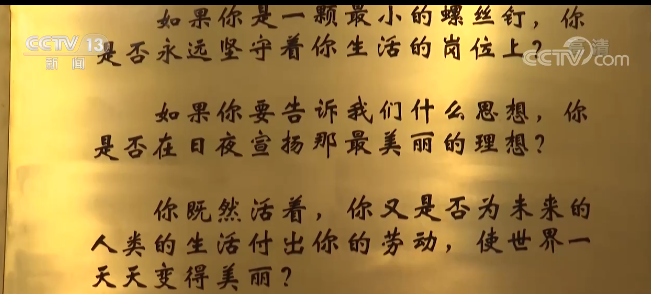 如果你是一颗最小的螺丝钉，你
CCTV 13
新闻
是否永远坚守着你生活的岗位上？
CCTV.com
高清
如果你要告诉我们什么思想，你
是否在日夜宣扬那最美丽的理想？
你既然活着，你又是否为未来的
人类的生活付出你的劳动，使世界一
天天变得美丽？